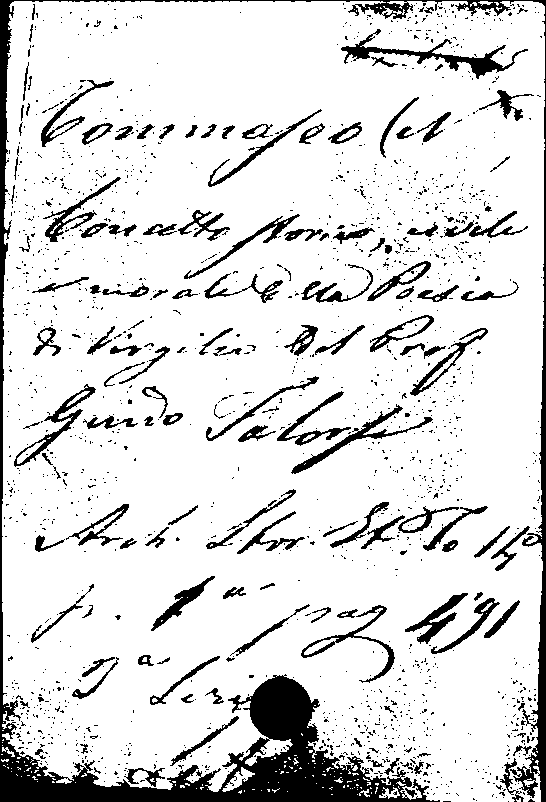 Tommaseo (N
Concetto storico, civile
e morale della Poesia
di Virgilio del Prof.
Guido Falorsi
Arch. Stor. It.º To 14º
p. 1ª pag 491
3ª Serie